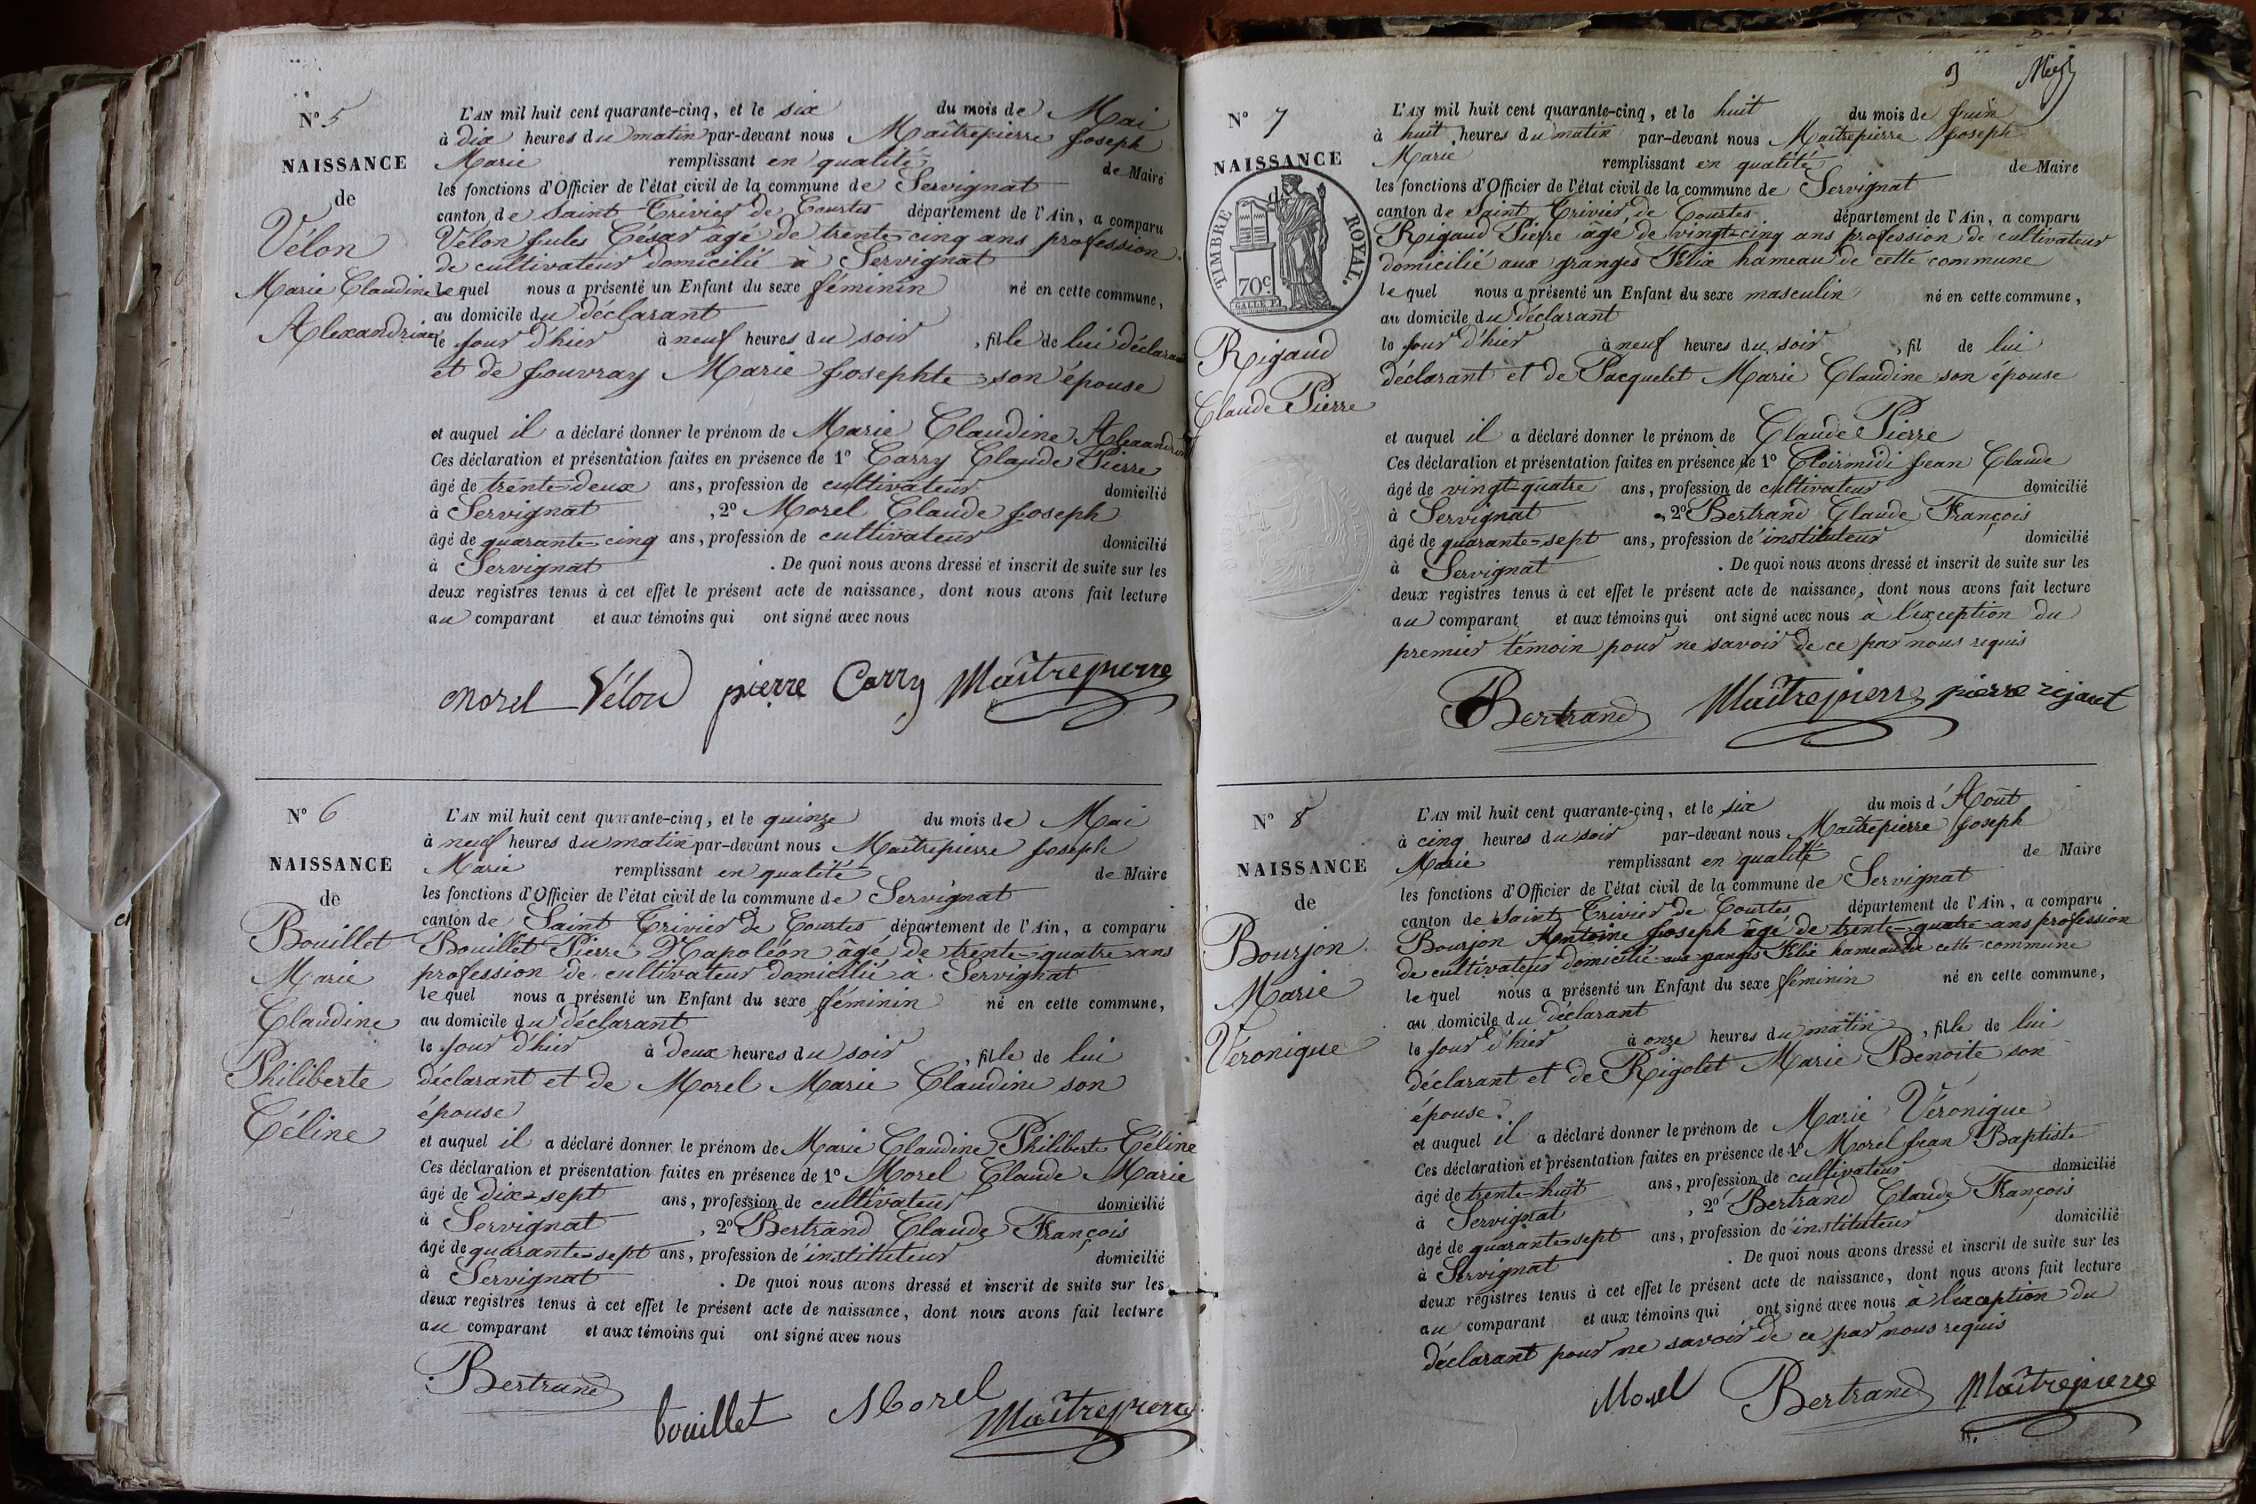 N° 5
NAISSANCE
de
Vélon
Marie Claudine
Alexandrine
L'AN mil huit cent quarante-cinq, et le six du mois de Mai
à dix heures du matin par-devant nous Maîtrepierre Joseph
Marie remplissant en qualité de Maire
les fonctions d'Officier de l'état civil de la commune de Servignat
canton de Saint Trivier de Courtes département de l'Ain, a comparu
Vélon Jules César âgé de trente-cinq ans profession
de cultivateur domicilié à Servignat
lequel nous a présenté un Enfant du sexe féminin né en cette commune,
au domicile du déclarant
le jour d'hier à neuf heures du soir, fille de lui déclarant
et de Jouvray Marie Josephte son épouse
et auquel il a déclaré donner le prénom de Marie Claudine Alexandrine
Ces déclaration et présentation faites en présence de 1° Carry Claude Pierre
âgé de trente-deux ans, profession de cultivateur domicilié
à Servignat, 2° Morel Claude Joseph
âgé de quarante-cinq ans, profession de cultivateur domicilié
à Servignat. De quoi nous avons dressé et inscrit de suite sur les
deux registres tenus à cet effet le présent acte de naissance, dont nous avons fait lecture
au comparant et aux témoins qui ont signé avec nous
morel Vélon pierre Carry Maîtrepierre
N° 6
NAISSANCE
de
Bouillet
Marie
Claudine
Philiberte
Céline
L'AN mil huit cent quarante-cinq, et le quinze du mois de Mai
à neuf heures du matin par-devant nous Maîtrepierre Joseph
Marie remplissant en qualité de Maire
les fonctions d'Officier de l'état civil de la commune de Servignat
canton de Saint Trivier de Courtes département de l'Ain, a comparu
Bouillet Pierre Napoléon âgé de trente-quatre ans
profession de cultivateur domicilié a Servignat
lequel nous a présenté un Enfant du sexe féminin né en cette commune,
au domicile du déclarant
le jour d'hier à deux heures du soir, fille de lui
déclarant et de Morel Marie Claudine son
épouse
et auquel il a déclaré donner le prénom de Marie Claudine Philiberte Céline
Ces déclaration et présentation faites en présence de 1° Morel Claude Marie
âgé de dix-sept ans, profession de cultivateur domicilié
à Servignat, 2° Bertrand Claude François
âgé de quarante-sept ans, profession de instituteur domicilié
à Servignat. De quoi nous avons dressé et inscrit de suite sur les
deux registres tenus à cet effet le présent acte de naissance, dont nous avons fait lecture
au comparant et aux témoins qui ont signé avec nous
Bertrand
bouillet Morel Maîtrepierre
3
N° 7
NAISSANCE
TIMBRE ROYAL.
70c.
Rigaud
Claude Pierre
L'AN mil huit cent quarante-cinq, et le huit du mois de Juin
à huit heures du matin par-devant nous Maîtrepierre Joseph
Marie remplissant en qualité de Maire
les fonctions d'Officier de l'état civil de la commune de Servignat
canton de Saint Trivier de Courtes département de l'Ain, a comparu
Rigaud Pierre age de vingt-cinq ans profession de cultivateur
domicilié aux granges Félix hameau de cette commune
lequel nous a présenté un Enfant du sexe masculin né en cette commune,
au domicile du déclarant
le jour d'hier à neuf heures du soir, fil de lui
déclarant et de Pacquelet Marie Claudine son épouse
et auquel il a déclaré donner le prénom de Claude Pierre
Ces déclaration et présentation faites en présence de 1° Cloirmidi Jean Claude
âgé de vingt-quatre ans, profession de cultivateur domicilié
à Servignat, 2° Bertrand Claude François
âgé de quarante-sept ans, profession de instituteur domicilié
à Servignat. De quoi nous avons dressé et inscrit de suite sur les
deux registres tenus à cet effet le présent acte de naissance, dont nous avons fait lecture
au comparant et aux témoins qui ont signé avec nous à l'exception du
premier témoin pour ne savoir de ce par nous requis
Bertrand Maîtrepierre pierre rigaut
N° 8
NAISSANCE
de
Bourjon
Marie
Véronique
L'AN mil huit cent quarante-cinq, et le six du mois d'Aout
à cinq heures du soir par-devant nous Maîtrepierre Joseph
Marie remplissant en qualité de Maire
les fonctions d'Officier de l'état civil de la commune de Servignat
canton de Saint Trivier de Courtes département de l'Ain, a comparu
Bourjon Antoine Joseph âgé de trente-quatre ans profession
de cultivateur domicilié aux granges Félix hameau de cette commune
lequel nous a présenté un Enfant du sexe féminin né en cette commune,
au domicile du déclarant
le jour d'hier à onze heures du matin, fille de lui
déclarant et de Rigolet Marie Benoite son
épouse.
et auquel il a déclaré donner le prénom de Marie Véronique
Ces déclaration et présentation faites en présence de 1° Morel Jean Baptiste
âgé de trente-huit ans, profession de cultivateur domicilié
à Servignat, 2° Bertrand Claude François
âgé de quarante-sept ans, profession de instituteur domicilié
à Servignat. De quoi nous avons dressé et inscrit de suite sur les
deux registres tenus à cet effet le présent acte de naissance, dont nous avons fait lecture
au comparant et aux témoins qui ont signé avec nous à l'exception du
déclarant pour ne savoir de ce par nous requis
Morel Bertrand Maîtrepierre